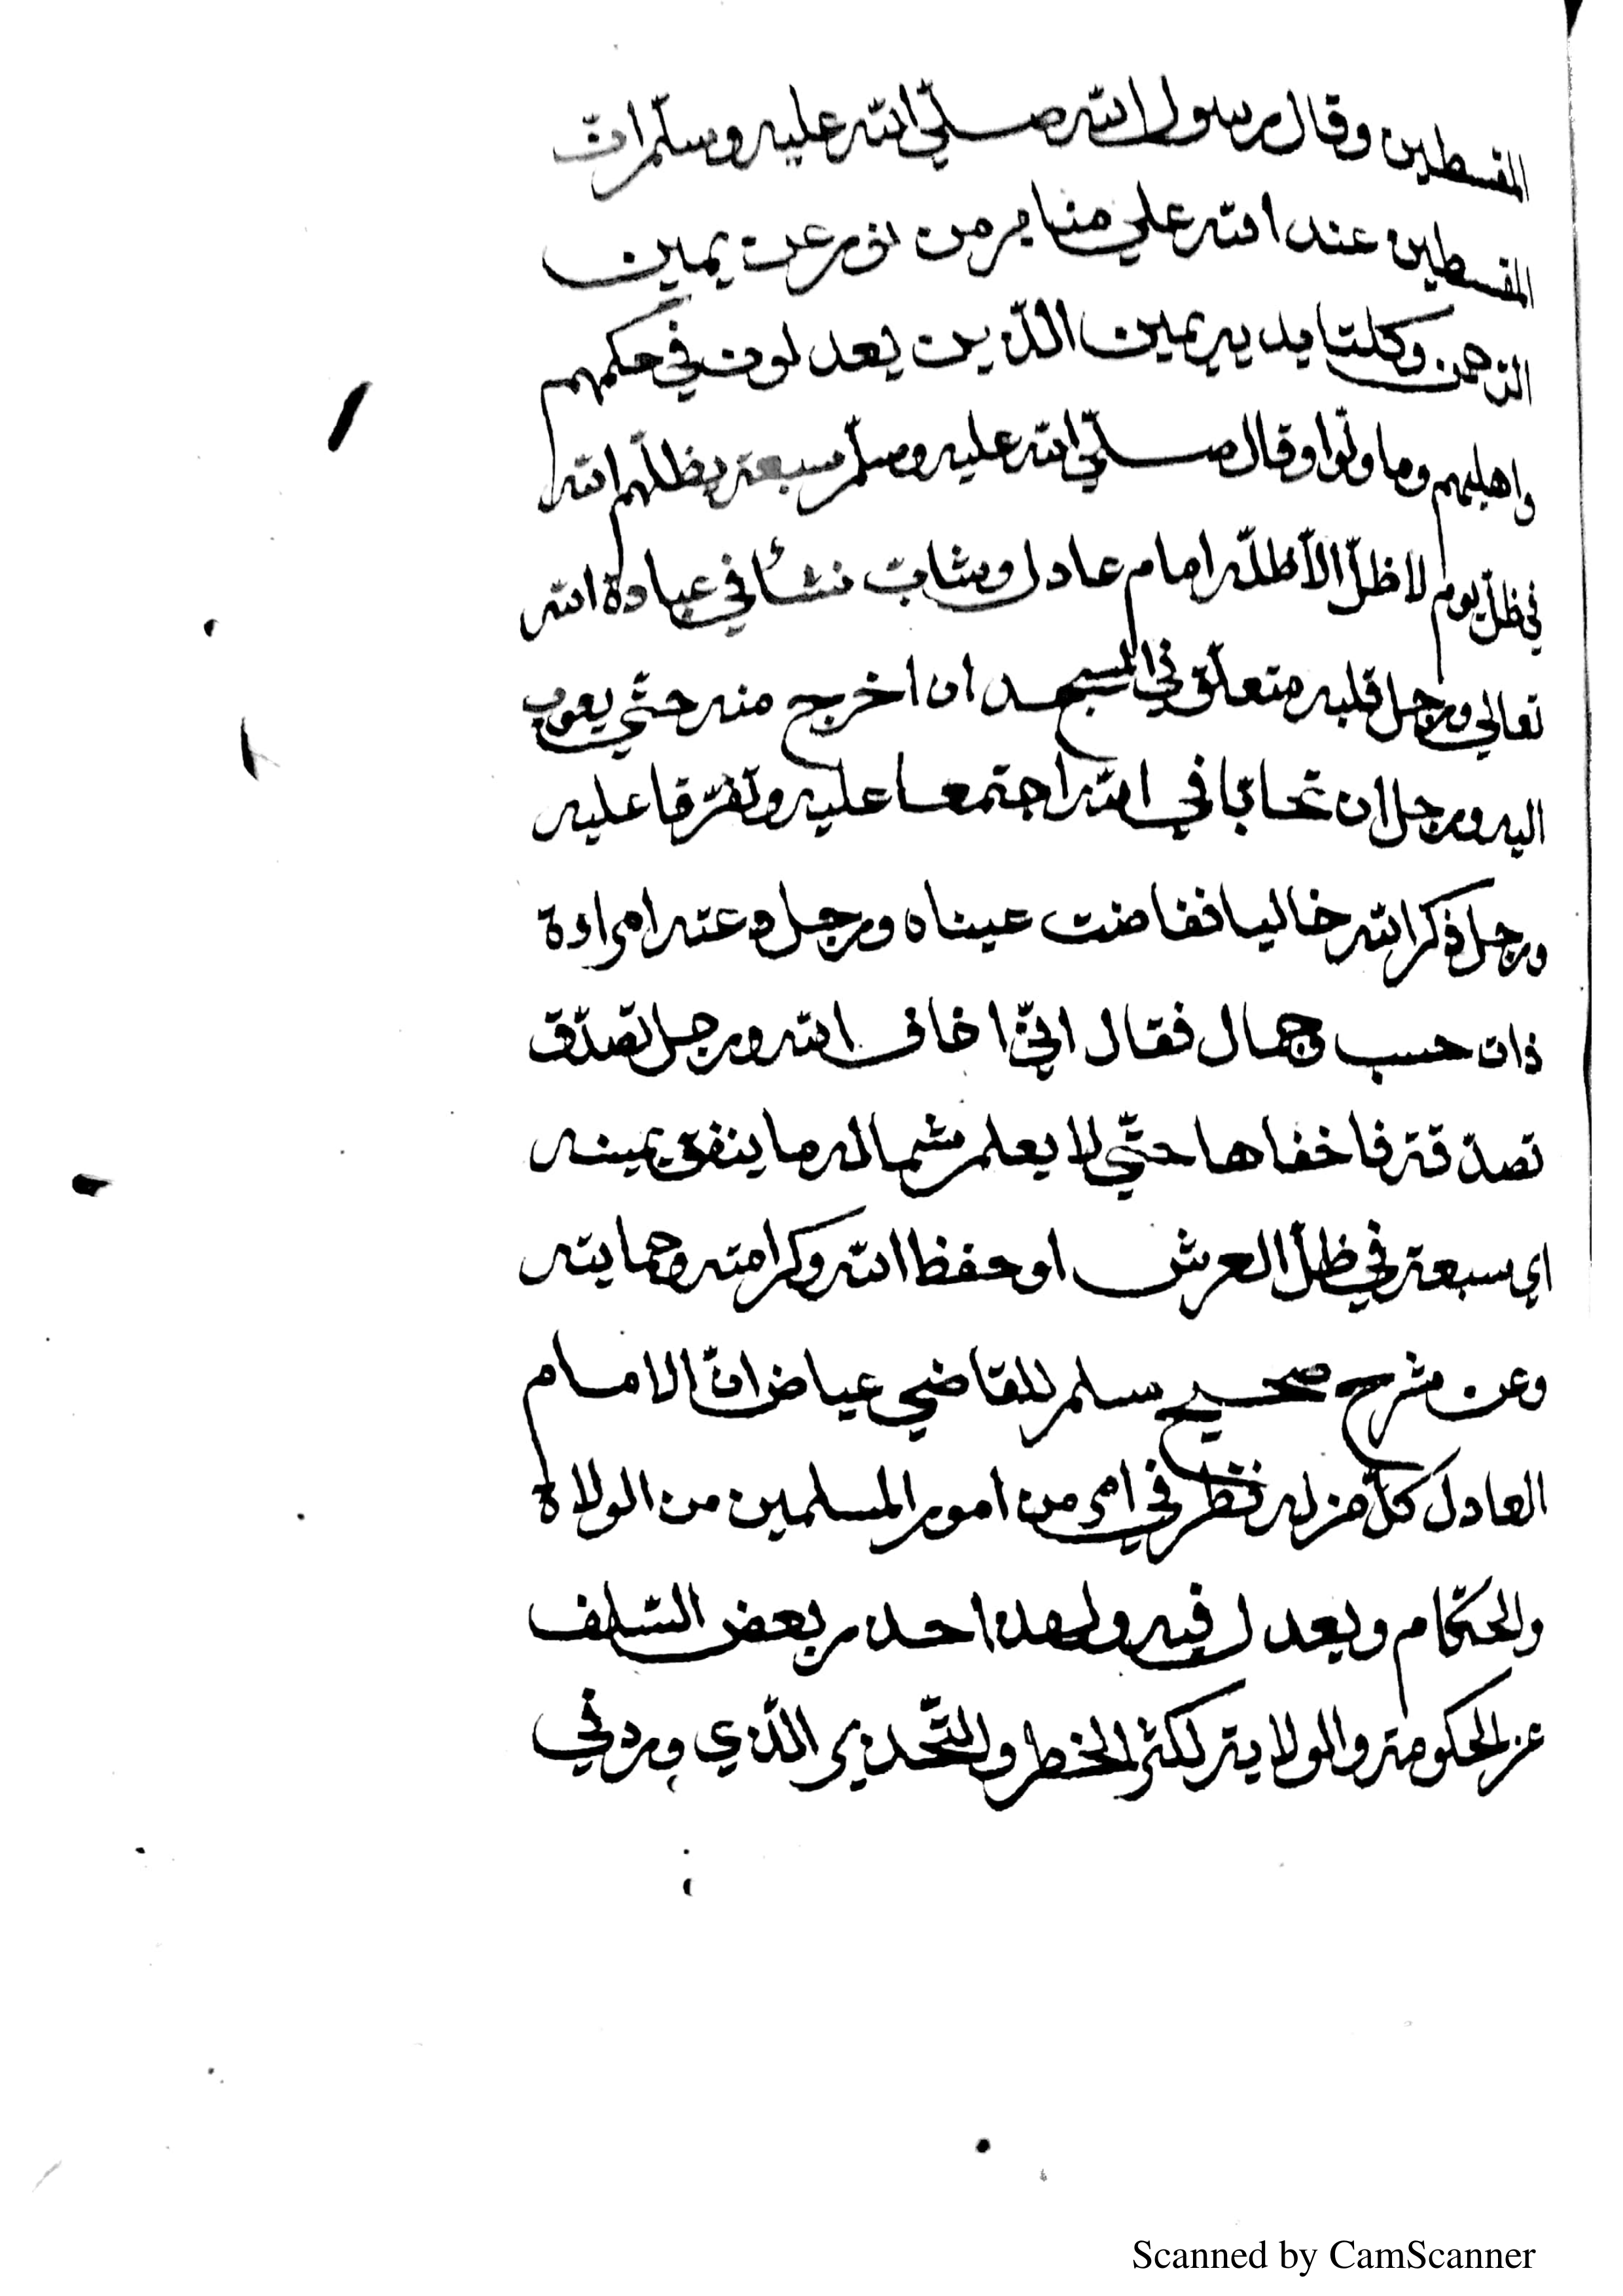 المقسطين وقال رسول الله صلّي الله عليه وسلّم انّ
المقسطين عند الله علي منابر من نور عن يمين
الرحمن وكلتا يديه يمين الّذين يعدلون في حكمهم
واهليهم وما ولّوا وقال صلّي الله عليه وسلّم سبعة يظلّهم الله
في ظلّ يوم لا ظلّ الاّ ظلّه امام عادل وشابّ نشأ في عبادة الله
تعالي ورجل قلبه متعلّق في المسجد اذا خرج منه حتّي يعود
اليه ورجلان تحابّا في الله اجتمعا عليه وتفرّقا عليه
ورجل ذكر الله خاليا ففاضت عيناه ورجل دعته امراءة
ذات حسب جمال فقال انّي اخاف الله ورجل تصدّق
تصدقة فاخفاها حتّي لا يعلم شماله ما ينفق يمينه
اي سبعة في ظلّ العرش او حفظ الله وكرامته وحمايته
وعن شرح صحيح مسلم للقاضي عياض انّ الامام
العادل كلّ من له نظر في امر من امور المسلمين من الولاة
والحكّام ويعدل فيه بعض السّلف
عن الحكومة والولاية لكثرة الخطر والتّحذير الّذي ورد في
Scanned by CamScanner